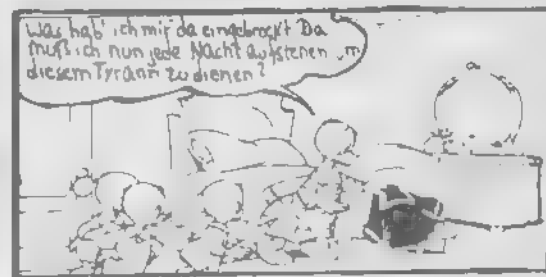 Was hab' ich mir da eingebrockt Da
muß ich nun jede Nacht aufstehen um
diesem Tyrann zu dienen?